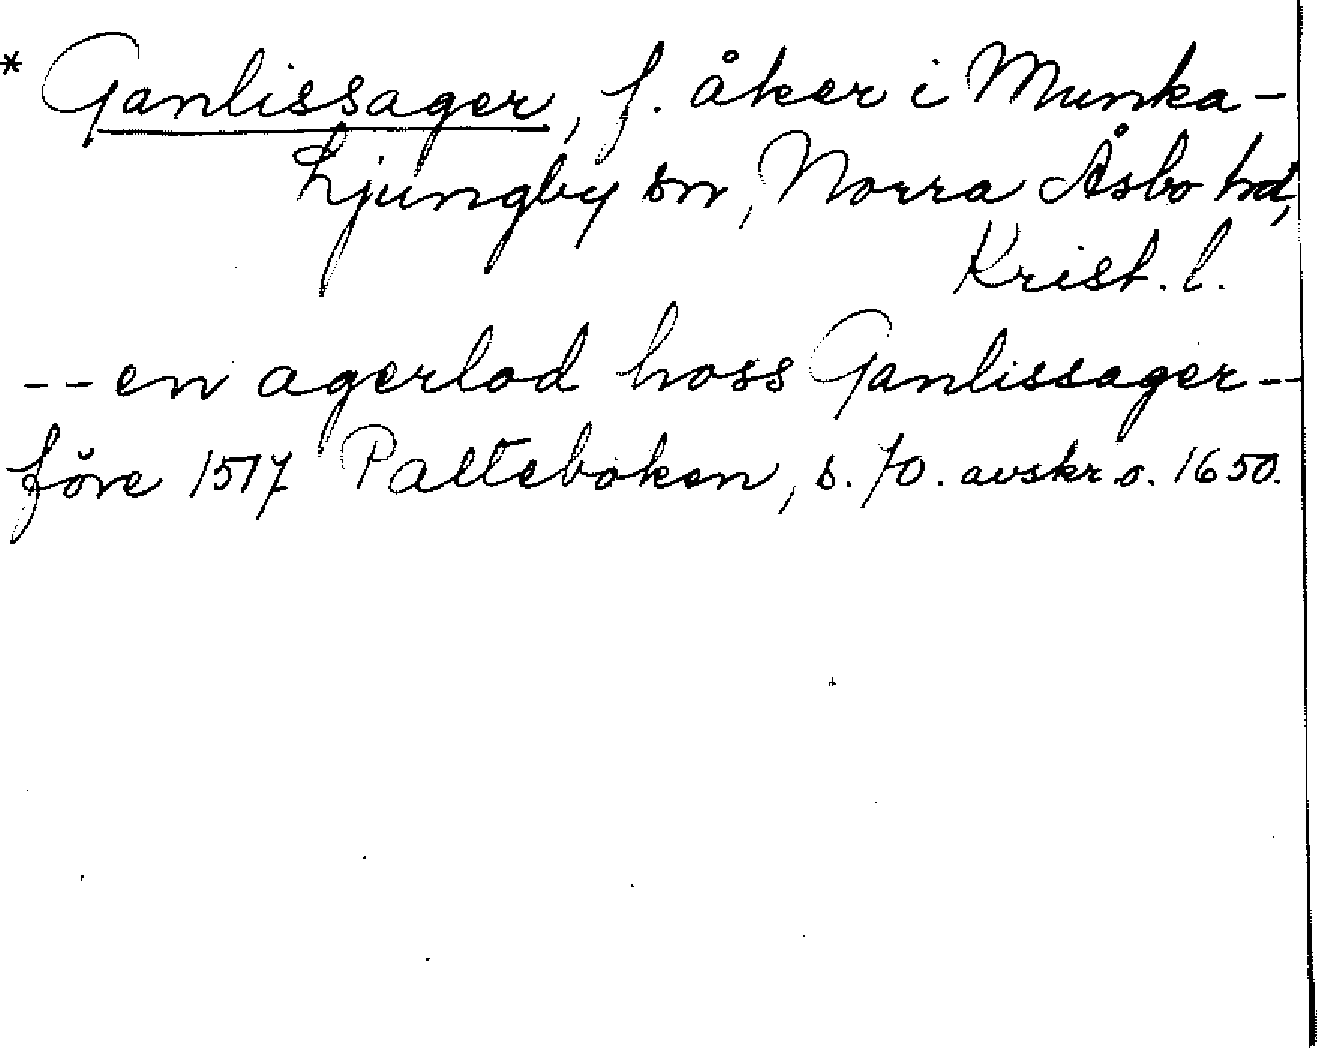 * Ganlissager, f. åker i Munka-
Ljungby sn, Norra Åsbo hd,
Krist. l.
-- en agerlod hoss Ganlissager --
före 1517 Palteboken, s. 70. avskr. o. 1650.